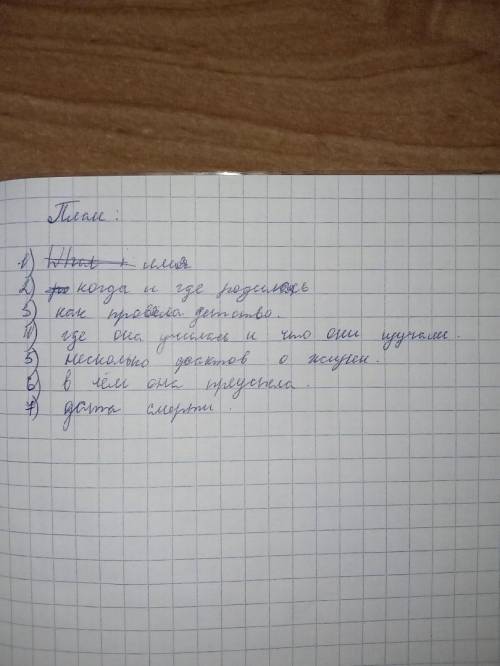 План:
1) имя
2) когда и где родилась
3) как провела детство.
4) где она училась и что они изучали.
5) несколько фактов о жизни.
6) в чём она преуспела.
7) дата смерти.